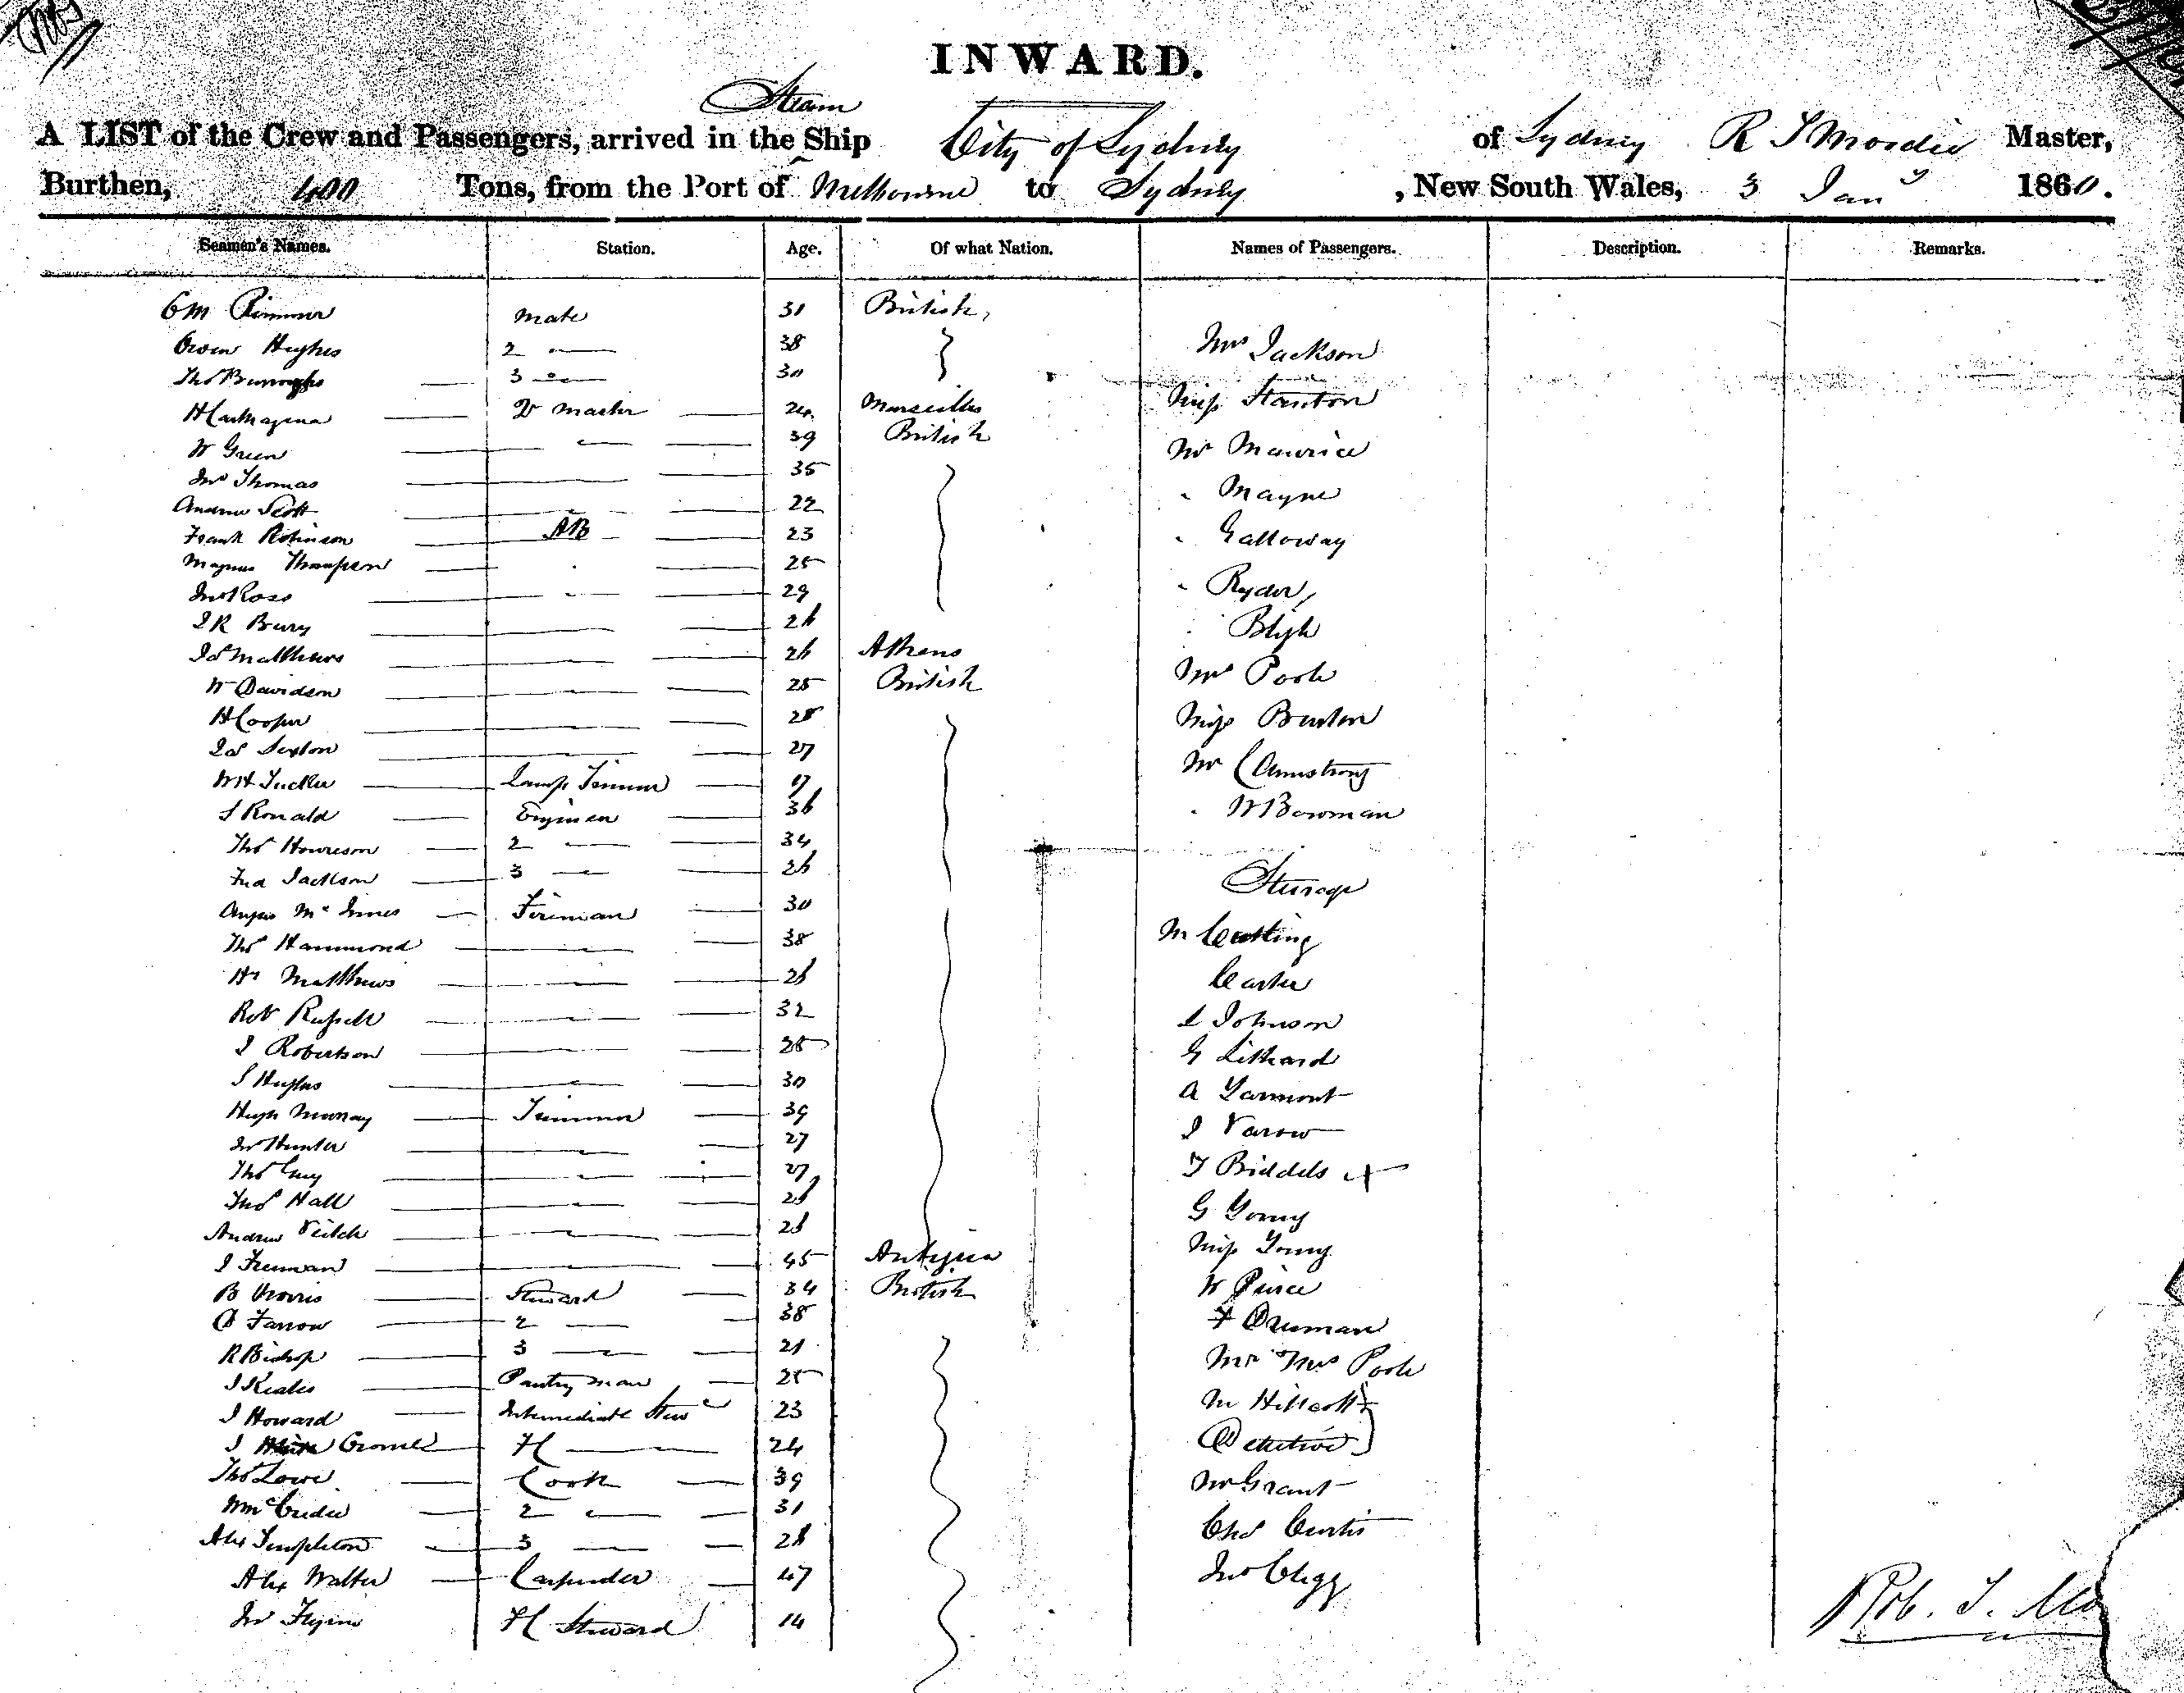 INWARD.
Steam
A LIST of the Crew and Passengers, arrived in the Ship City of Sydney of Sydney R T Moodie Master,
Burthen, 400 Tons, from the Port of Melbourne to Sydney, New South Wales, 3 Jany 1860.
Seamen's Names. Station. Age. Of what Nation. Names of Passengers. Description. Remarks.
Mate 31 British,
Owen Hughes 2 38 Mrs Jackson
Thos Burroughs 3 30
24 Marseilles Miss Stanton
W Green 39 British
Jno Thomas 35 Mr Maurice
Andrew Scott 22 " Mayne
Frank Robinson AB 23 " Galloway
Magnus Thompson 25
Jno Ross 29 " Ryder
J R Bury 26 Bligh
Jas Matthews 26 Athens
W Davidson 25 British Mrs Poole
H Cooper 28 Miss Burton
Jas Sexton 27
W H Tucker Lamp Trimmer 17 Mr C Armstrong
J Ronald Engineer 36 " W Bowman
Thos Howieson 2 34
Fred Jackson 3 26 Steerage
Angus McInnes Fireman 30
Thos Hammond 38 M Cutting
Hy Matthews 26 Carter
Robt Russell 32 L Johnson
J Robertson 28 G Lithard
J Hughes 30 A Yarmont
Hugh Murray Trimmer 39 J Varow
Jno Hunter 27
Thos Guy 27 T Biddels
Thos Hall 26 G Young
Andrew Veitch 26 Miss Young
J Freeman 45 Antigua
B Norris Steward 34 British W Pierce
A Farrow 2 38 F Druman
R Bishop 3 21 Mr Mrs Poole
J Keates Pantry man 25
J Howard Intermediate Stewd 23 Mr Hillcott
J 24 Detective
Thos Lowe Cook 39 Mr Grant
2 31 Chas Curtis
Alex Templeton 3 26
Alex Walker Carpender 47 Jno Clegg
14 Rob. T. Mo